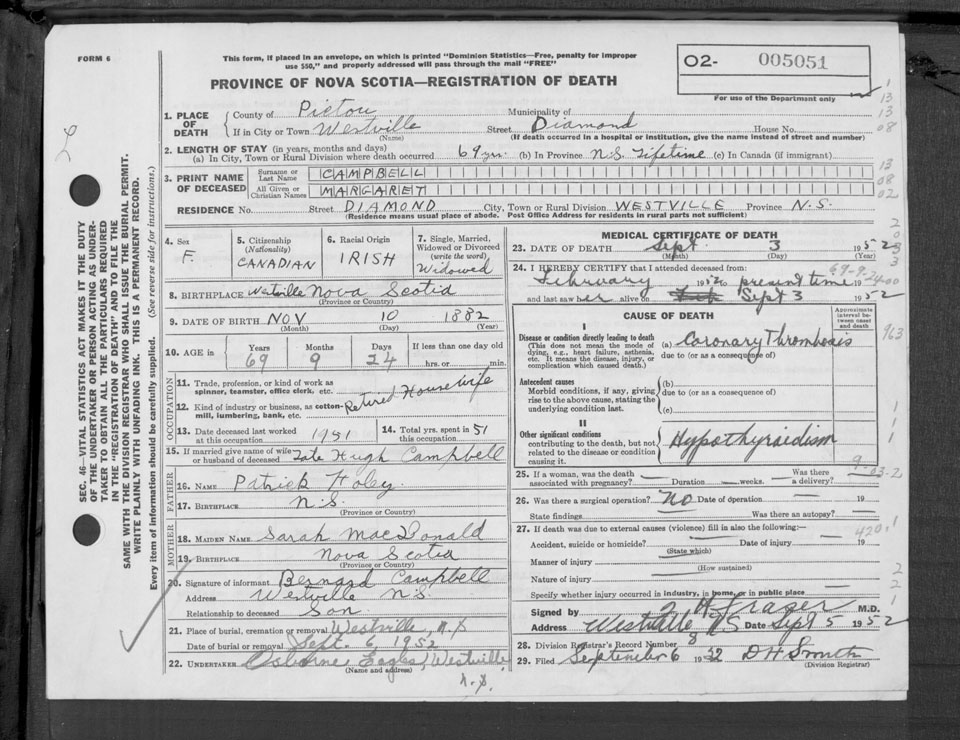 FORM 6
This form, if placed in an envelope, on which is printed "Dominion Statistics—Free, penalty for improper
use $50," and properly addressed will pass through the mail "FREE"
PROVINCE OF NOVA SCOTIA—REGISTRATION OF DEATH
O2- 005051
For use of the Department only
1. PLACE OF DEATH
County of Pictou Municipality of
If in City or Town Westville Street Diamond House No.
(Name) (If death occurred in a hospital or institution, give the name instead of street and number)
2. LENGTH OF STAY (in years, months and days)
(a) In City, Town or Rural Division where death occurred 69 yrs. (b) In Province N.S. Lifetime (c) In Canada (if immigrant)
3. PRINT NAME OF DECEASED
Surname or Last Name CAMPBELL
All Given or Christian Names MARGARET
RESIDENCE No. Street DIAMOND City, Town or Rural Division WESTVILLE Province N.S.
(Residence means usual place of abode. Post Office Address for residents in rural parts not sufficient)
4. Sex F.
5. Citizenship (Nationality) CANADIAN
6. Racial Origin IRISH
7. Single, Married, Widowed or Divorced (write the word) Widowed
8. BIRTHPLACE Westville Nova Scotia
(Province or Country)
9. DATE OF BIRTH NOV 10 1882
(Month) (Day) (Year)
10. AGE in Years 69 Months 9 Days 24 If less than one day old
hrs. or min.
OCCUPATION
11. Trade, profession, or kind of work as
spinner, teamster, office clerk, etc.
12. Kind of industry or business, as cotton-
mill, lumbering, bank, etc. Retired Housewife
13. Date deceased last worked at this occupation 1951
14. Total yrs. spent in this occupation 51
15. If married give name of wife or husband of deceased Late Hugh Campbell
FATHER
16. NAME Patrick Foley
17. BIRTHPLACE N.S.
(Province or Country)
MOTHER
18. MAIDEN NAME Sarah MacDonald
19. BIRTHPLACE Nova Scotia
(Province or Country)
20. Signature of informant Bernard Campbell
Address Westville N.S.
Relationship to deceased Son
21. Place of burial, cremation or removal Westville, N.S
Date of burial or removal Sept. 6, 1952
22. UNDERTAKER Osborne Eagles, Westville,
(Name and address) N.S.
MEDICAL CERTIFICATE OF DEATH
23. DATE OF DEATH Sept. 3 1952
(Month) (Day) (Year)
24. I HEREBY CERTIFY that I attended deceased from:
February 1952 to present time 19
and last saw her alive on Sept 3 1952
69-9-24
CAUSE OF DEATH
Approximate interval between onset and death
I
Disease or condition directly leading to death
(This does not mean the mode of
dying, e.g., heart failure, asthenia,
etc. It means the disease, injury, or
complication which caused death.)
(a) Coronary Thrombosis
due to (or as a consequence of)
Antecedent causes
Morbid conditions, if any, giving
rise to the above cause, stating the
underlying condition last.
(b)
due to (or as a consequence of)
(c)
II
Other significant conditions
contributing to the death, but not
related to the disease or condition
causing it.
Hypothyraidism
25. If a woman, was the death associated with pregnancy? — Duration — weeks. Was there a delivery? —
26. Was there a surgical operation? NO Date of operation — 19
State findings Was there an autopsy? —
27. If death was due to external causes (violence) fill in also the following:—
Accident, suicide or homicide? Date of injury 19
(State which)
Manner of injury
(How sustained)
Nature of injury
Specify whether injury occurred in industry, in home, or in public place
420.1
Signed by Frazer M.D.
Address Westville NS Date Sept 5 1952
28. Division Registrar's Record Number 8
29. Filed September 6 1952 D H Smith
(Division Registrar)
SEC. 46—VITAL STATISTICS ACT MAKES IT THE DUTY
OF THE UNDERTAKER OR PERSON ACTING AS UNDER-
TAKER TO OBTAIN ALL THE PARTICULARS REQUIRED
IN THE "REGISTRATION OF DEATH" AND TO FILE THE
SAME WITH THE DIVISION REGISTRAR WHO SHALL ISSUE THE BURIAL PERMIT.
WRITE PLAINLY WITH UNFADING INK. THIS IS A PERMANENT RECORD.
Every item of information should be carefully supplied. (See reverse side for instructions.)